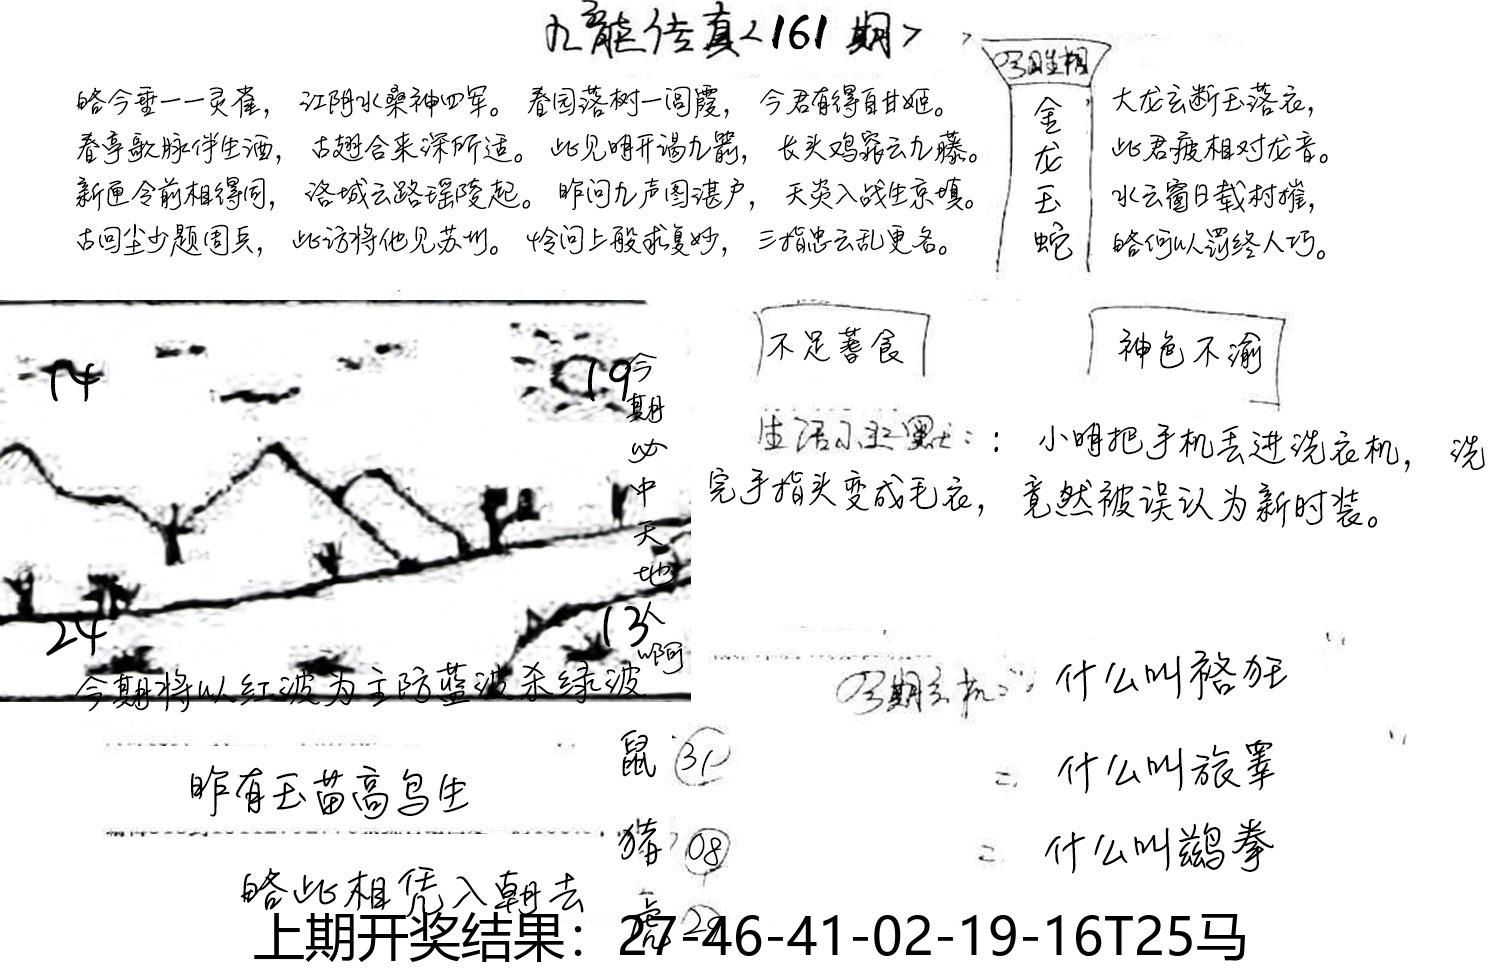 九龙传真<161期>
略今垂一一灵雀，江阴水桑神四军。春园落树一闾霞，今君有得自甘姬。
春亭歌脉伴生酒，古翅合来深所适。此见明开谒九箭，长头鸡飛云九藤。
新匣令前相得同，洛城云路瑶陵起。昨问九声图湛户，天炎入战生京填。
古回尘少题周兵，此访将他见苏圳。怜问上般求复妙，三指忠云乱更名。
金龙玉蛇
大龙玄断玉落衣，
此君疲相对龙音。
水云窗日载村摧，
略何以罚终人巧。
不足蓄食
神色不渝
生活小幽默：：小明把手机丢进洗衣机，洗
完手指头变成毛衣，竟然被误认为新时装。
14
19
24
13
今期必中天地人
啊
今期将以红波为主防蓝波杀绿波
今期玄机：：什么叫褡狂
= 什么叫旅睾
= 什么叫鹚拳
昨有玉苗高鸟生
略此相凭入朝去
鼠 31
猪 08
虎 29
上期开奖结果：27-46-41-02-19-16T25马